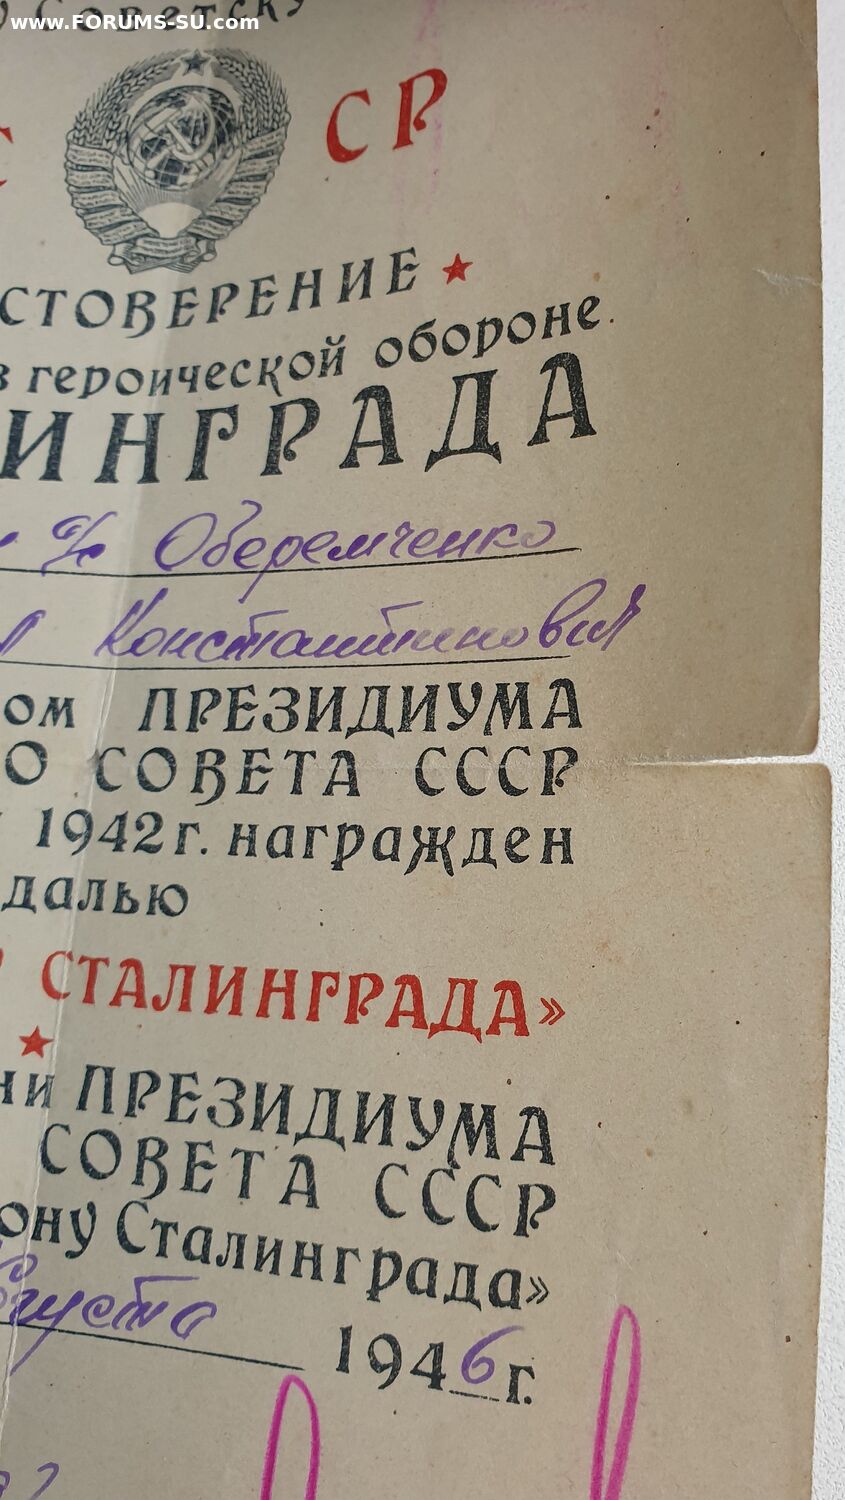 www.FORUMS-SU.com
Советск
СР
СТОВЕРЕНИЕ
в героической обороне
ИНГРАДА
Оберемченко
Константинович
ом ПРЕЗИДИУМА
О СОВЕТА СССР
1942 г. награжден
далью
СТАЛИНГРАДА»
ни ПРЕЗИДИУМА
СОВЕТА СССР
ону Сталинграда»
августа
1946 г.